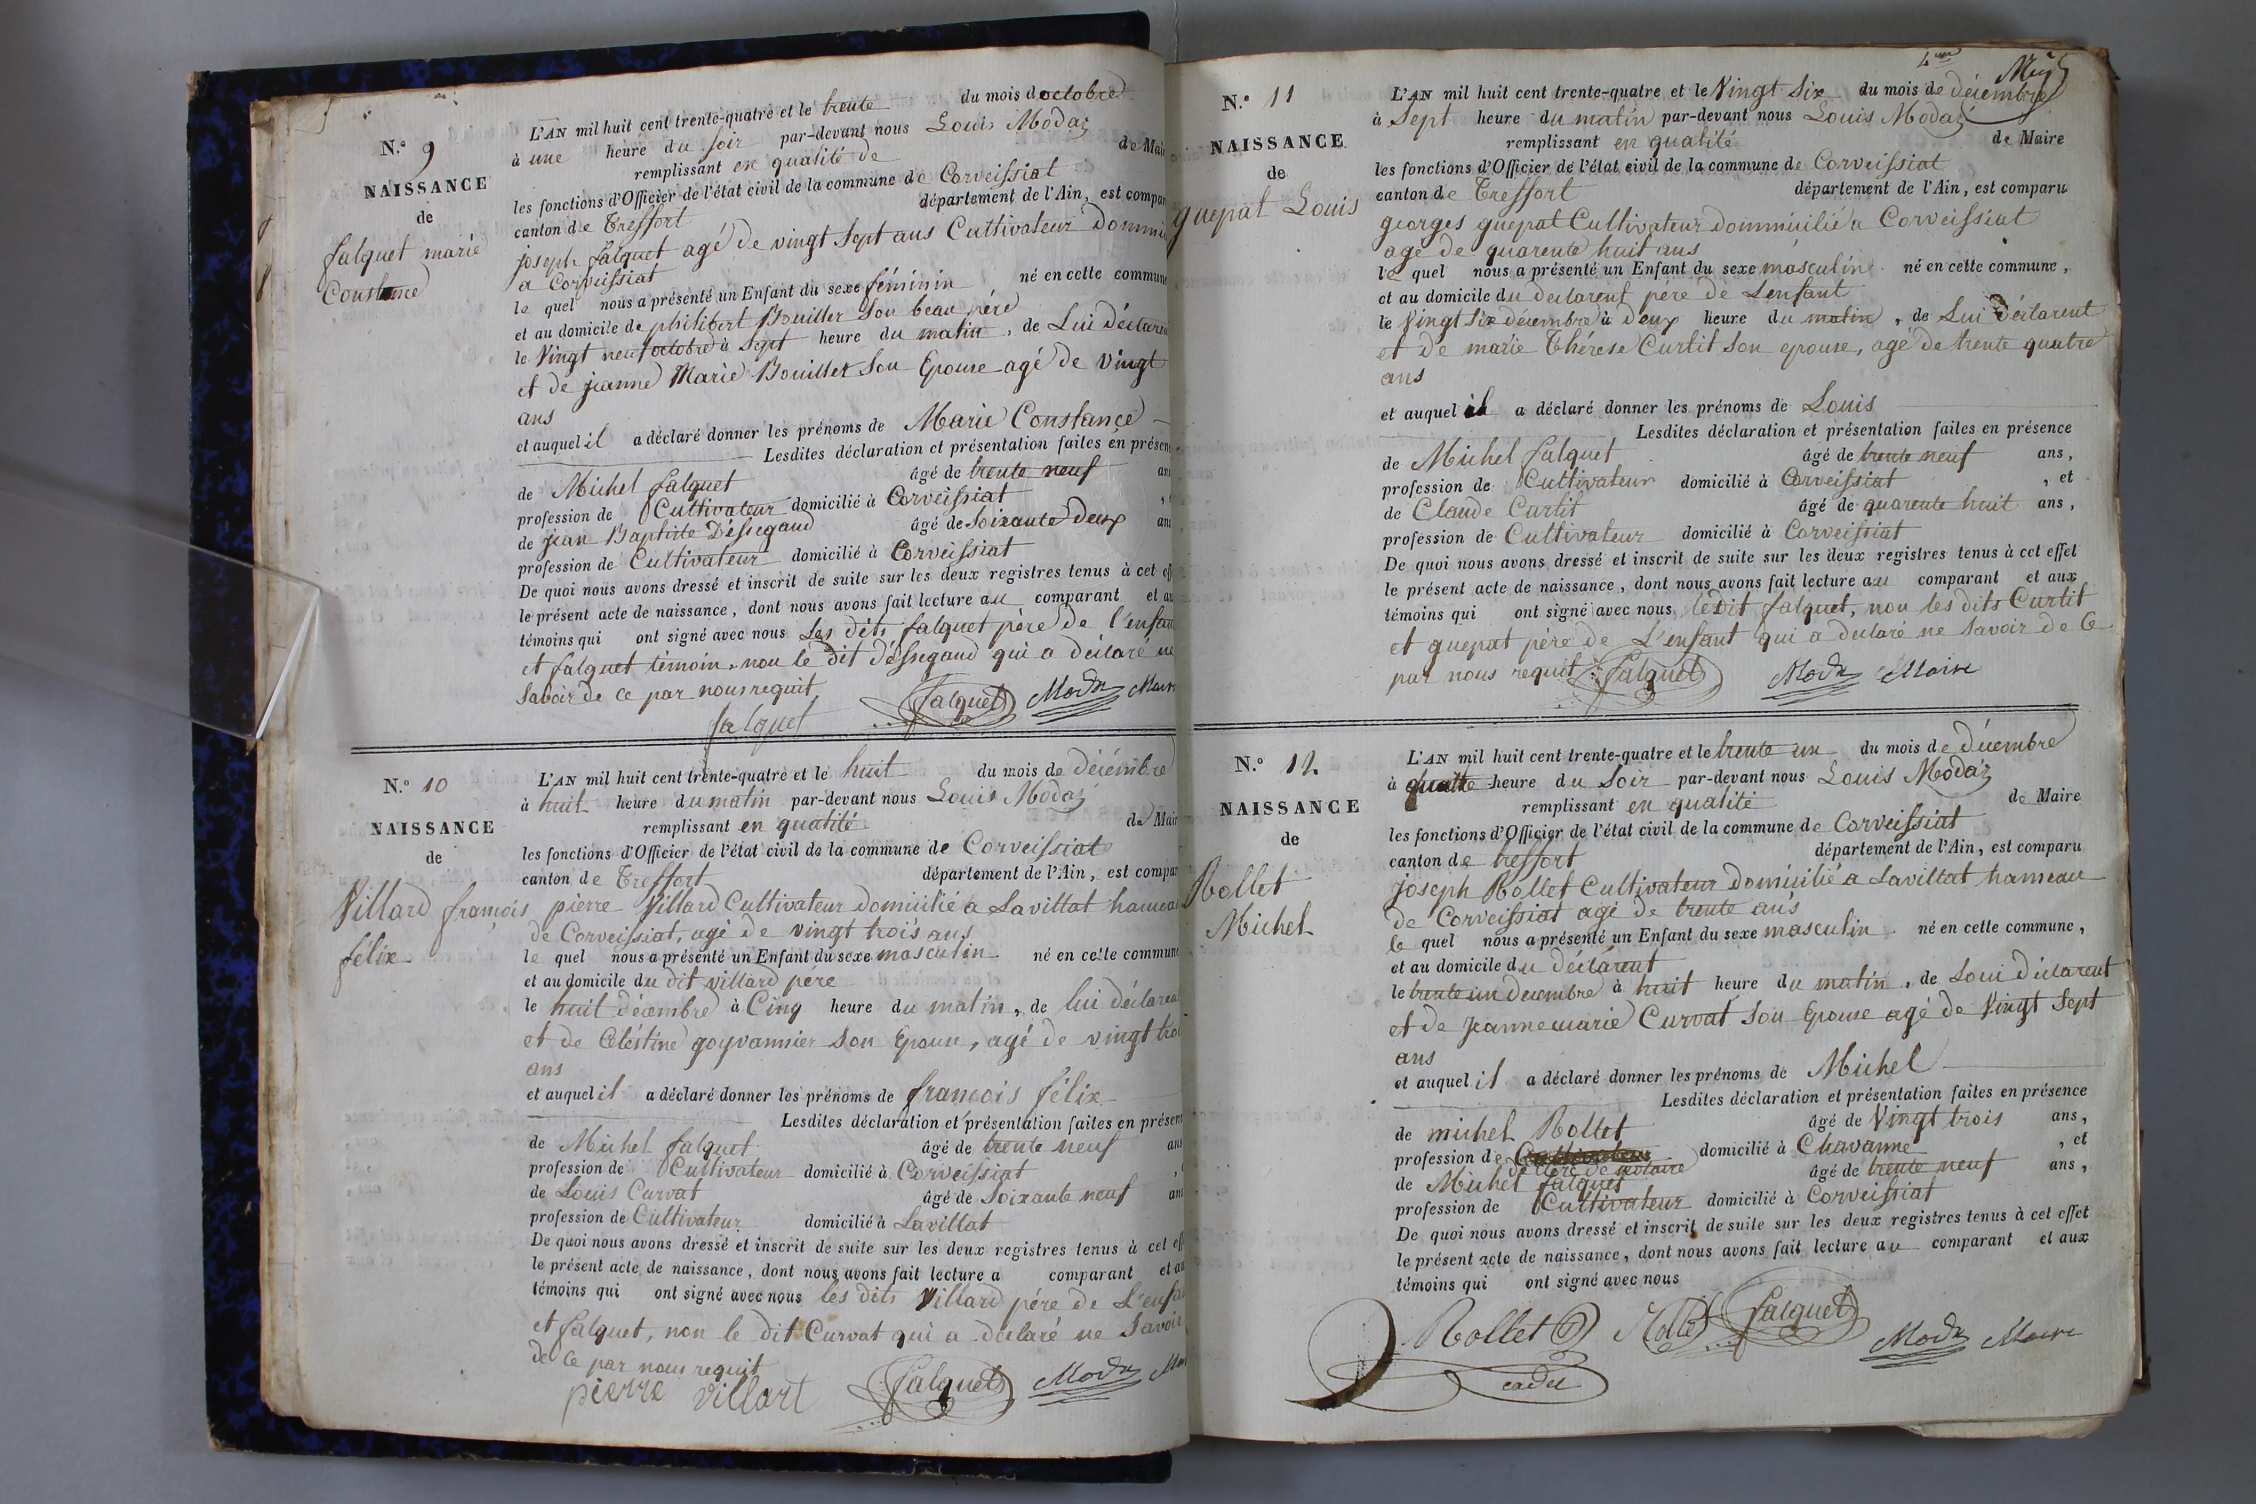 N.º 9
NAISSANCE
de
falquet marie
Constance
L'AN mil huit cent trente-quatre et le trente du mois d octobre
à une heure du soir par-devant nous Louis Modaz
remplissant en qualité de de Mair
les fonctions d'Officier de l'état civil de la commune de Corveissiat
canton de Treffort département de l'Ain, est compar
joseph falquet agé de vingt sept ans Cultivateur Dommi
a Corveissiat
le quel nous a présenté un Enfant du sexe féminin né en cette commune
et au domicile de philibert Bouiller Son beau pére
le Vingt neuf octobre à Sept heure du matin, de Lui déclaren
et de jeanne Marie Bouiller Son Epouse agé de Vingt
ans
et auquel il a déclaré donner les prénoms de Marie Constance
Lesdites déclaration et présentation faites en présen
de Michel falquet âgé de trente neuf an
profession de Cultivateur domicilié à Corveissiat
de jean Baptiste Dessegaud âgé de Soixante deux ans
profession de Cultivateur domicilié à Corveissiat
De quoi nous avons dressé et inscrit de suite sur les deux registres tenus à cet eff
le présent acte de naissance, dont nous avons fait lecture au comparant et au
témoins qui ont signé avec nous Les dits falquet père de l'enfan
et falquet témoin, non le dit Dessegaud qui a déclaré ne
Savoir de ce par nous requit
falquet Falquet Modaz Maire
N.º 10
NAISSANCE
de
Villard françois
félix
L'AN mil huit cent trente-quatre et le huit du mois de décémbre
à huit heure du matin par-devant nous Louis Modaz
remplissant en qualité de Mair
les fonctions d'Officier de l'état civil de la commune de Corveissiat
canton de Treffort département de l'Ain, est compar
pierre Villard Cultivateur domicilié a Lavillat hameau
de Corveissiat, agé de vingt trois ans
le quel nous a présenté un Enfant du sexe masculin né en cette commune
et au domicile du dit villard pére
le huit décembre à Cinq heure du matin, de lui déclaren
et de Céléstine goyvannier Son Epouse, agé de vingt troi
ans
et auquel il a déclaré donner les prénoms de françois félix
Lesdites déclaration et présentation faites en présen
de Michel falquet âgé de trente neuf ans
profession de Cultivateur domicilié à Corveissiat
de Louis Curvat âgé de Soixante neuf an
profession de Cultivateur domicilié à Lavillat
De quoi nous avons dressé et inscrit de suite sur les deux registres tenus à cet eff
le présent acte de naissance, dont nous avons fait lecture a comparant et au
témoins qui ont signé avec nous les dits Villard pére de L'enfa
et falquet, non le dit Curvat qui a declaré ne Savoir
de ce par nous requit
pierre villart Falquet Modaz Mai
N.º 11
NAISSANCE
de
guepat Louis
L'AN mil huit cent trente-quatre et le Vingt Six du mois de décembre
à Sept heure du matin par-devant nous Louis Modaz
remplissant en qualité de Maire
les fonctions d'Officier de l'état civil de la commune de Corveissiat
canton de Treffort département de l'Ain, est comparu
georges guepat Cultivateur dommicilié a Corveissiat
agé de quarente huit ans
le quel nous a présenté un Enfant du sexe masculin né en cette commune,
et au domicile du declarent pére de Lenfant
le Vingt Six décembre à Deux heure du matin, de Lui déclarent
et de marie Thérese Curtit Son epouse, agé de trente quatre
ans
et auquel il a déclaré donner les prénoms de Louis
Lesdites déclaration et présentation faites en présence
de Michel falquet âgé de trente neuf ans,
profession de Cultivateur domicilié à Corveissiat, et
de Claude Curtit âgé de quarente huit ans,
profession de Cultivateur domicilié à Corveissiat
De quoi nous avons dressé et inscrit de suite sur les deux registres tenus à cet effet
le présent acte de naissance, dont nous avons fait lecture au comparant et aux
témoins qui ont signé avec nous le dit falquet, non les dits Curtit
et guepat pére de L'enfant qui a declaré ne Savoir de Ce
par nous requit Falquet Modaz Maire
N.º 12
NAISSANCE
de
Rollet
Michel
L'AN mil huit cent trente-quatre et le trente un du mois de décembre
à quatte heure du Soir par-devant nous Louis Modaz
remplissant en qualité de Maire
les fonctions d'Officier de l'état civil de la commune de Corveissiat
canton de treffort département de l'Ain, est comparu
joseph Rollet Cultivateur domicilié a Lavillat hameau
de Corveissiat agé de trente ans
le quel nous a présenté un Enfant du sexe masculin né en cette commune,
et au domicile du déclarent
le trente un decembre à huit heure du matin, de Loui déclarent
et de jeanne marie Curvat Son Epouse agé de Vingt Sept
ans
et auquel il a déclaré donner les prénoms de Michel
Lesdites déclaration et présentation faites en présence
de michel Rollet âgé de Vingt trois ans,
profession de Cultivateur domicilié à Chavanne, et
de Clerc de notaire
de Michel falquet âgé de trente neuf ans,
profession de Cultivateur domicilié à Corveissiat
De quoi nous avons dressé et inscrit de suite sur les deux registres tenus à cet effet
le présent acte de naissance, dont nous avons fait lecture au comparant et aux
témoins qui ont signé avec nous
Rollet Rollet Falquet Modaz Maire
cadet